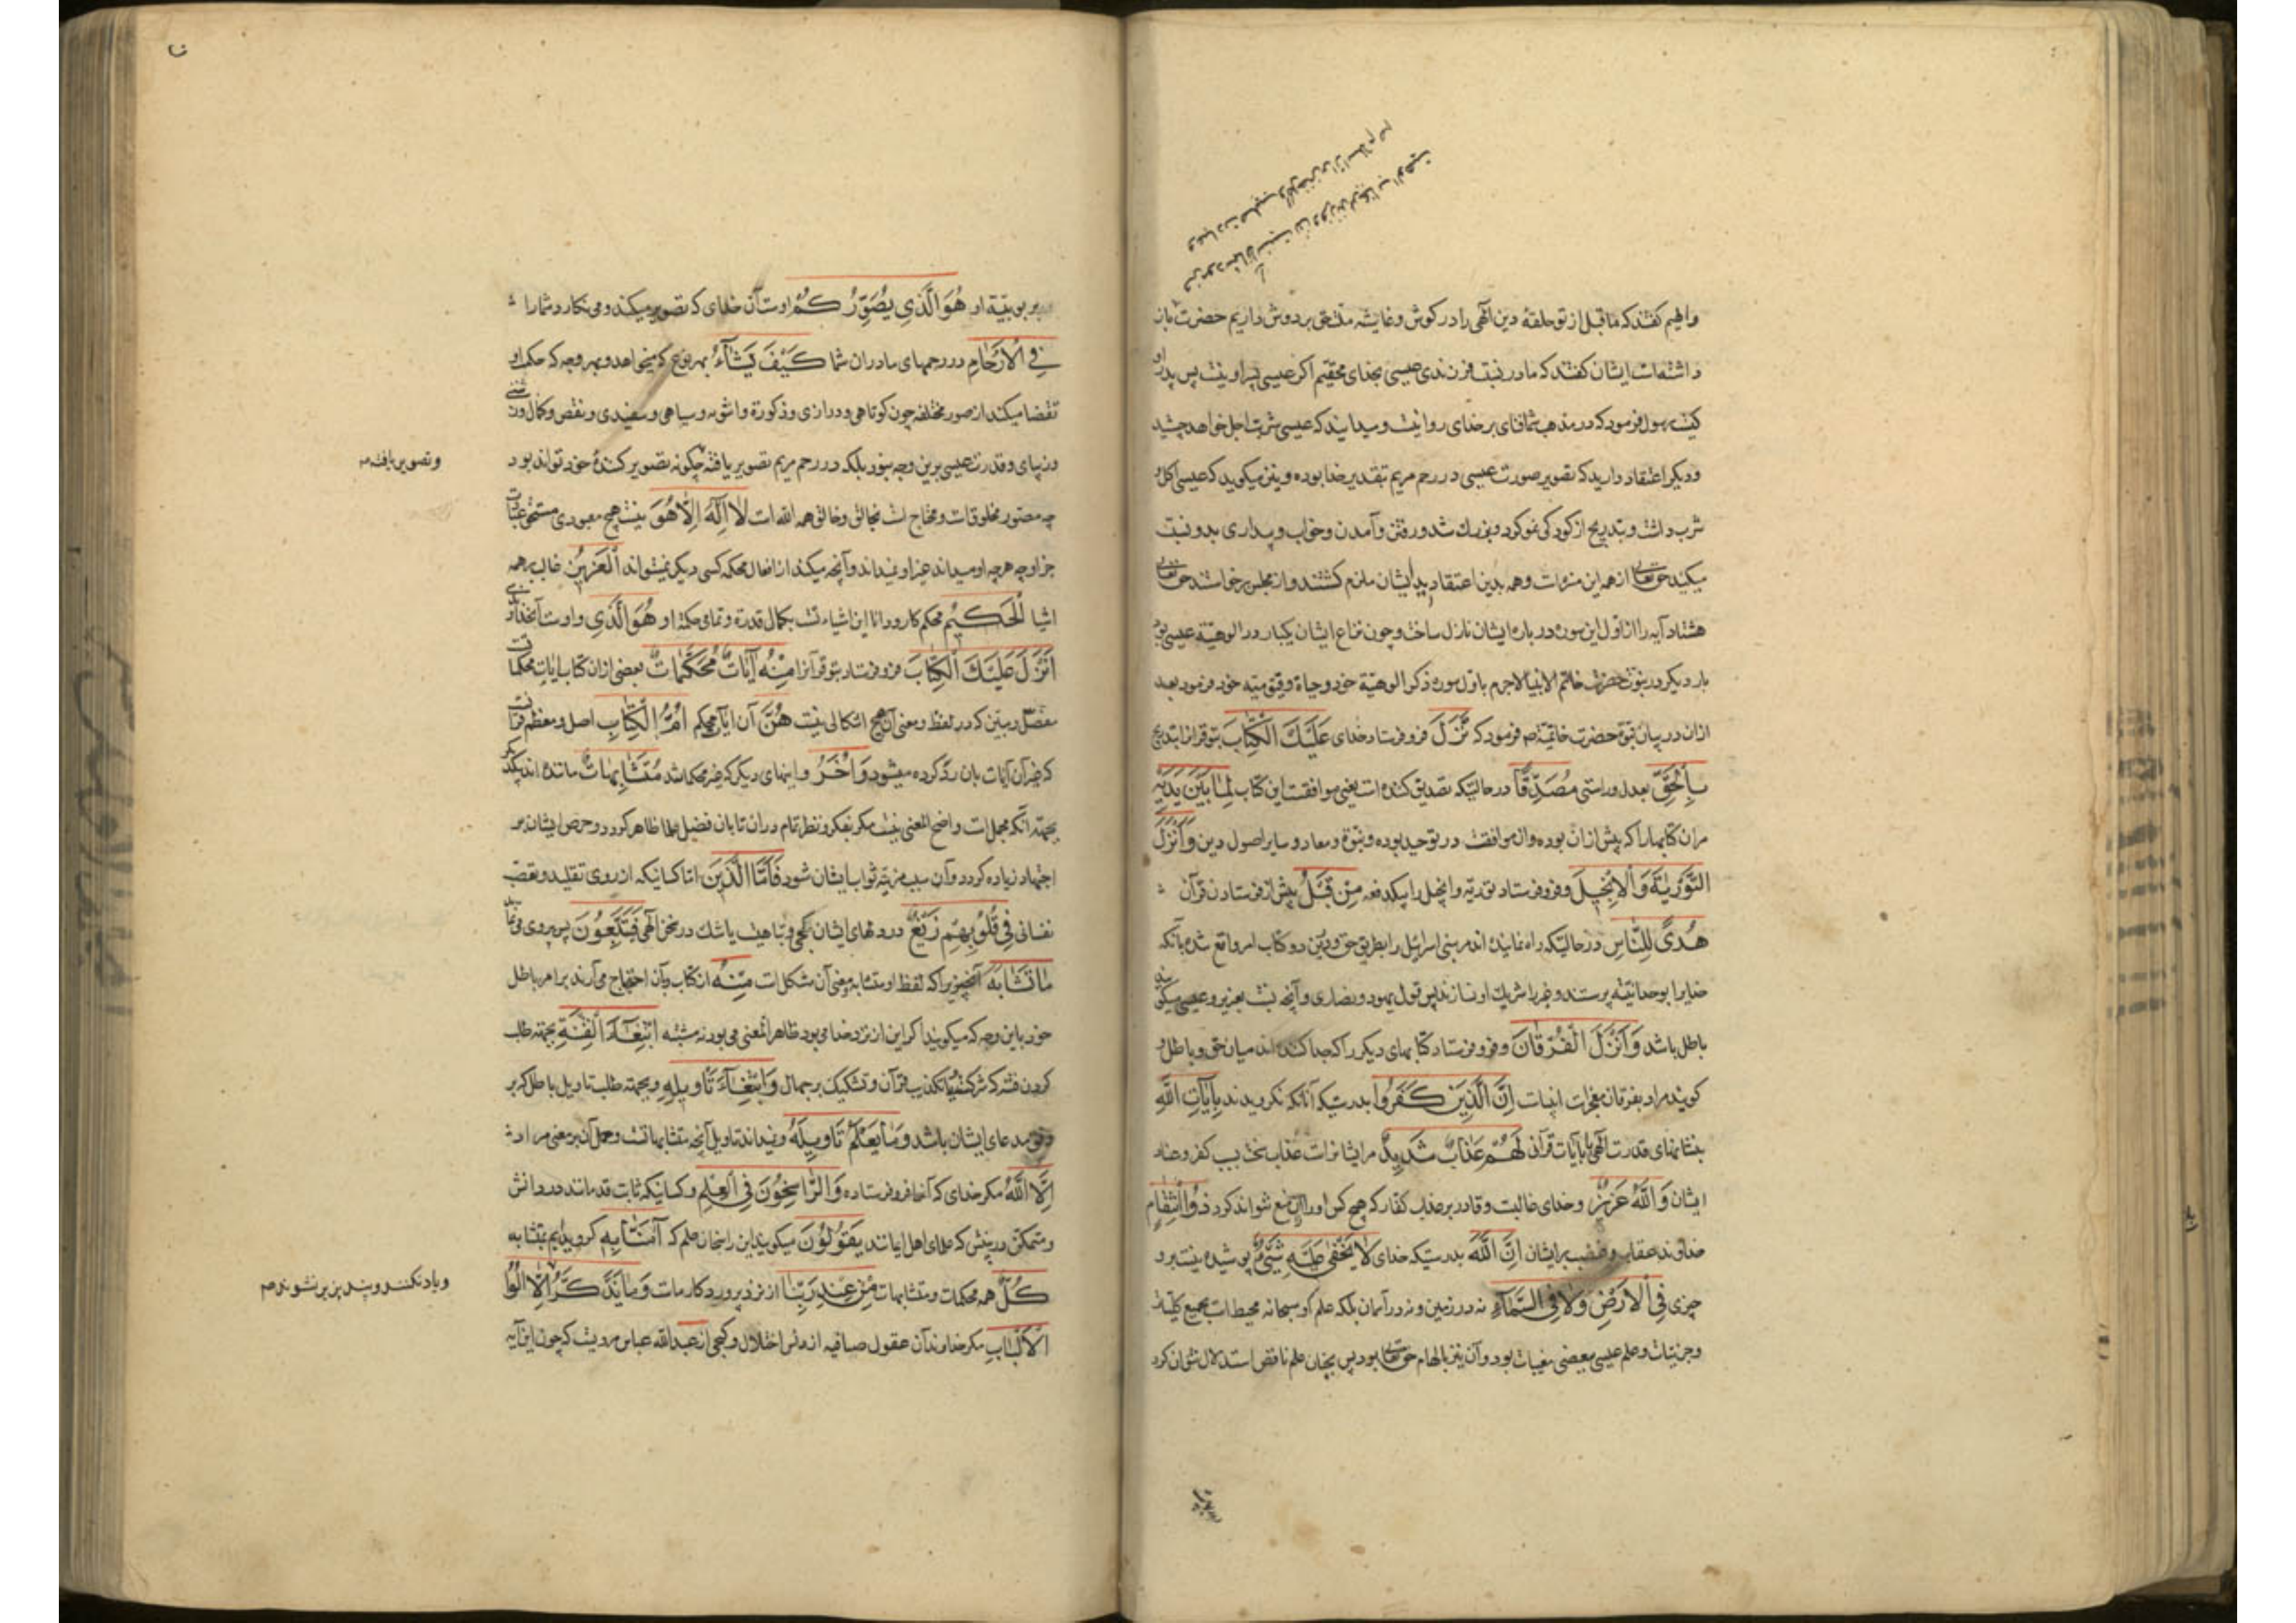 و ایهم گفتند که ما قبل از تو حلقهٔ دین الهی را در گوش و غاشیه متحقق بر دوش داریم حضرت باز
داشته است ایشان گفتند که ما در نسبت فرزندی عیسی بخدای محقیم اگر عیسی پسر او نیست پس پدر او
کیست رسول فرمود که در مذهب شما فنای بر خدای روا نیست و میدانید که عیسی شربت اجل خواهد چشید
و دیگر اعتقاد دارید که تصویر صورت عیسی در رحم مریم بتقدیر خدا بوده و نیز میگوید که عیسی اکل و
شرب داشت و بتدریج از کودکی نمو کرد و بزرك شد و رفتن و آمدن و خواب و بیداری بدو نسبت
میکنید حق تعالی از همه این منزه است و همه بدین اعتقاد ایشان ملزم کشتند و از مجلس برخاستند حق تعالی
هشتاد آیه را از اول این سوره در باره ایشان نازل ساخت و چون نزاع ایشان یکبار در الوهیة عیسی بود
بار دیگر در نبوت حضرت خاتم الانبیا لاجرم باول سوره ذکر الوهیة خود و حیاة و قیومیته خود فرمود بعد
ازان در بیان نبوة حضرت خاتمیة ص فرمود که نَزَّلَ فرو فرستاد خدای عَلَیْكَ الْکِتَابَ بتو قرانرا بتدریج
بِالْحَقِّ بعدل و راستی مُصَدِّقًا در حالتیکه تصدیق کننده است یعنی موافقست این کتاب لِمَا بَیْنَ یَدَیْهِ
مران کتابها را که پیش ازان بوده و ان موافقت در توحید بوده و نبوة و معاد و سایر اصول دین وَاَنْزَلَ
التَّوْرٰیةَ وَالْاِنْجِیلَ و فرو فرستاد توریة و انجیل را بیکدفعه مِنْ قَبْلُ پیش از فرستادن قرآن
هُدًی لِلنَّاسِ در حالتیکه راه نماینده اند مر بنی اسرائیل را بطریق حق و درین دو کتاب امر واقع شده بانکه
خدایرا بوحدانیته پرستند و غیر را شریك او نسازند پس قول یهود و نصاری و آنچه نسبت بعزیر و عیسی میکویند
باطل باشد وَاَنْزَلَ الْفُرْقَانَ و فرو فرستاد کتابهای دیگر را که جدا کننده اند میان حق و باطل و
کویند مراد بفرقان معجزات انبیاست اِنَّ الَّذِینَ کَفَرُوا بدرستیکه آنانکه نکرویدند بِآیَاتِ اللّٰهِ
بنشانهای قدرت الهی یا بآیات قرآن لَهُمْ عَذَابٌ شَدِیدٌ مر ایشانراست عذاب سخت بسبب کفر و عناد
ایشان وَاللّٰهُ عَزِیزٌ و خدای غالبست و قادر بر عذاب کفار که هیچ کس او را ازان منع نتواند کرد ذُو انْتِقَامٍ
خداوند عقاب و غضب بر ایشان اِنَّ اللّٰهَ بدرستیکه خدای لَا یَخْفٰی عَلَیْهِ شَیْءٌ پوشیده نیست برو
چیزی فِی الْاَرْضِ وَلَا فِی السَّمَآءِ نه در زمین و نه در آسمان بلکه علم او سبحانه محیط است بجمیع کلیات
و جزئیات و علم عیسی ببعضی مغیبات بود و آن نیز بالهام حق تعالی بود پس بچنان علم ناقص استدلال نتوان کرد
بر ربوبیّة او هُوَ الَّذِی یُصَوِّرُکُمْ اوست آن خدای که تصویر میکند و می نکارد شما را
فِی الْاَرْحَامِ در رحمهای مادران شما کَیْفَ یَشَآءُ بهر نوع که میخواهد و بهر وجه که حکم او
تقضا میکند از صور مختلفه چون کوتاهی و درازی و ذکورة و انوثه و سیاهی و سفیدی و نقص و کمال و زشتی
و زیبای و قدرت عیسی برین وجه نبود بلکه در رحم مریم تصویر یافته چکونه تصویر کنندهٔ خود تواند بود
و تصویر یافته صه
چه مصور مخلوقات و محتاج است بخالق و خالق همه الله است لَا اِلٰهَ اِلَّا هُوَ نیست هیچ معبودی مستحق عبادت
جز او چه هرچه او میداند غیر او نمیداند و آنچه میکند از افعال محکمه کسی دیگر نمیتواند اَلْعَزِیزُ غالب بر همه
اشیا الْحَکِیمُ محکم کار و دانا این اشیاء تست بکمال قدرة و تمامی حکمة او هُوَ الَّذِی و اوست آنخداوندی
اَنْزَلَ عَلَیْكَ الْکِتَابَ فرو فرستاد بتو قرآنرا مِنْهُ آیَاتٌ مُحْکَمَاتٌ بعضی ازان کتاب ایات محکماتست
مفصل و مبین که در لفظ و معنی آن هیچ اشکالی نیست هُنَّ آن ایات محکم اُمُّ الْکِتَابِ اصل و معظم قرانست
که غیر آن آیات بان رد کرده میشود وَاُخَرُ و ایتهای دیگر که غیر محکم اند مُتَشَابِهَاتٌ مانند اند بیکدیگر
بجهته انکه مجمل است و واضح المعنی نیست مکر بفکر و نظر تام دران تا بان فضیل علما ظاهر کردد و حرص ایشان بر
اجتهاد زیاده کردد و آن سبب مزیة ثواب ایشان شود فَاَمَّا الَّذِینَ اما کسانیکه از روی تقلید و تعصب
نفسانی فِی قُلُوبِهِمْ زَیْغٌ در دلهای ایشان کجی و تباهیست یا شك در سخن الهی فَیَتَّبِعُونَ پس پیروی می نمایند
مَا تَشَابَهَ آنچیزیرا که لفظ او متشابه و معنی آن مشکل است مِنْهُ از کتاب و بآن احتجاج می آرند بر امر باطل
خود باین وجه که میکویند اکر این از نزد خدا می بود ظاهر المعنی می بود نه مشتبه ابْتِغَآءَ الْفِتْنَةِ بجهته طلب
کردن فتنه که شرکست یا تکذیب قرآن و تشکیك بر جهال وَابْتِغَآءَ تَاْوِیلِهِ و بجهته طلب تاویل باطل که بر
وفق مدعای ایشان باشد وَمَا یَعْلَمُ تَاْوِیلَهُ و نمیداند تاویل آنچه متشابهاتست و حمل آن بر معنی مراد
اِلَّا اللّٰهُ مکر خدای که آنرا فرو فرستاده وَالرَّاسِخُونَ فِی الْعِلْمِ و کسانیکه ثابت قدمانند در دانش
و متمکن در بینش که علمای اهل ایمانند یَقُولُونَ میکویند این راسخان علم که آمَنَّا بِهِ کرویدیم بمتشابه
کُلٌّ همه محکمات و متشابهات مِنْ عِنْدِ رَبِّنَا از نزد پروردکار ماست وَمَا یَذَّکَّرُ اِلَّا اُولُوا
و یاد نکنند و پند پذیر نشوند صه
الْاَلْبَابِ مکر خداوندان عقول صافیه از دنس اختلال و کجی از عبدالله عباس مرویست که چون این آیه